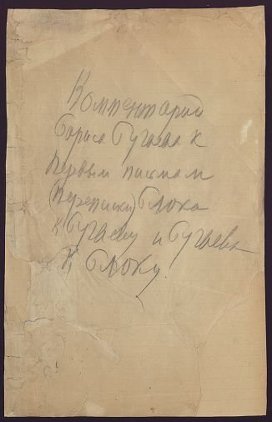 Комментарий
Бориса Бугаева к
первым письмам
Переписки Блока
к Бугаеву и Бугаева
к Блоку.